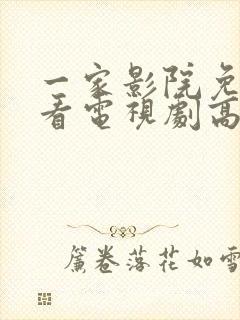 一家影院免
看電視劇高
簾卷落花如雪